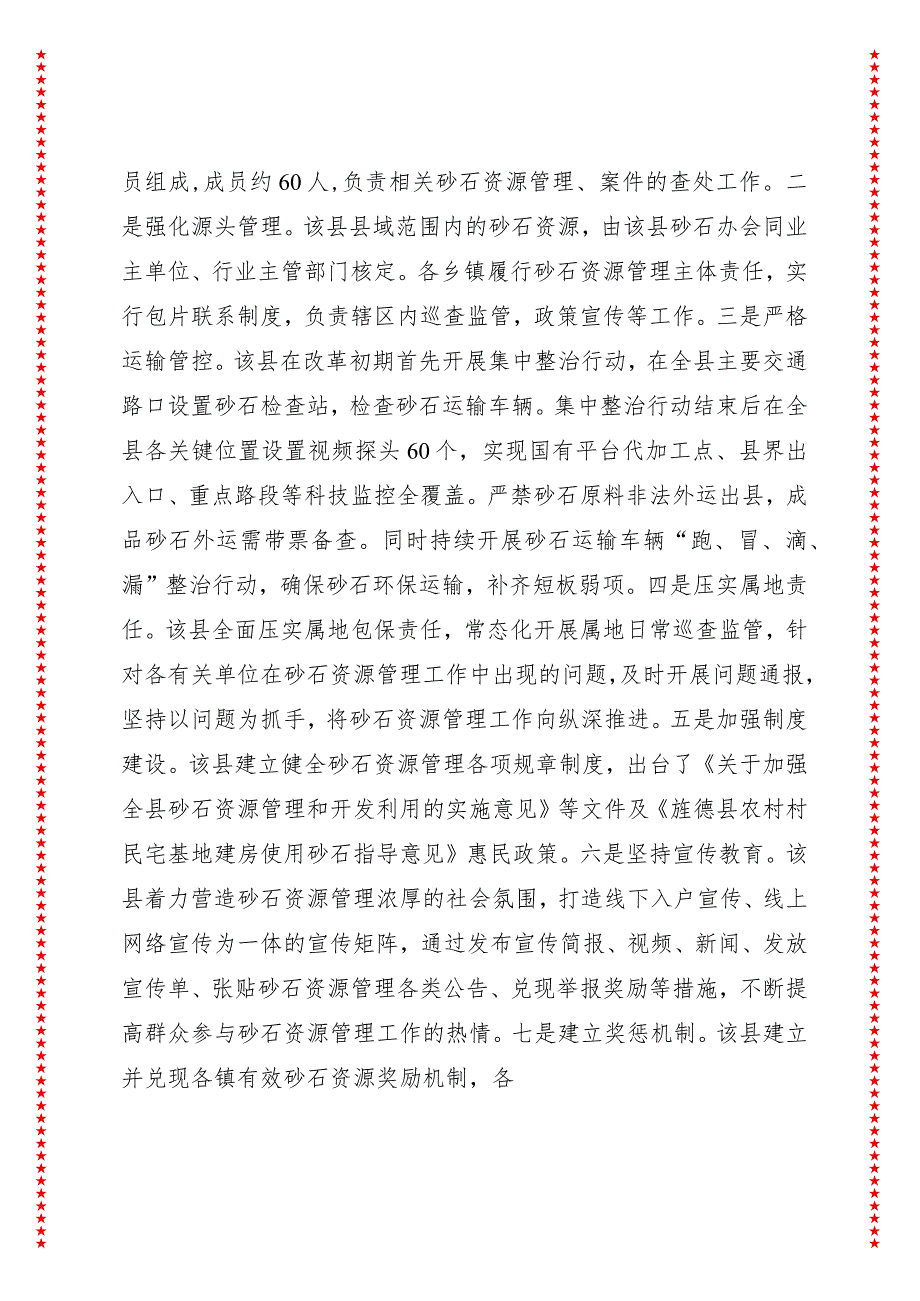 员组成,成员约60人,负责相关砂石资源管理、案件的查处工作。二
是强化源头管理。该县县域范围内的砂石资源，由该县砂石办会同业
主单位、行业主管部门核定。各乡镇履行砂石资源管理主体责任，实
行包片联系制度，负责辖区内巡查监管，政策宣传等工作。三是严格
运输管控。该县在改革初期首先开展集中整治行动，在全县主要交通
路口设置砂石检查站，检查砂石运输车辆。集中整治行动结束后在全
县各关键位置设置视频探头60个，实现国有平台代加工点、县界出
入口、重点路段等科技监控全覆盖。严禁砂石原料非法外运出县，成
品砂石外运需带票备查。同时持续开展砂石运输车辆“跑、冒、滴、
漏”整治行动，确保砂石环保运输，补齐短板弱项。四是压实属地责
任。该县全面压实属地包保责任，常态化开展属地日常巡查监管，针
对各有关单位在砂石资源管理工作中出现的问题,及时开展问题通报，
坚持以问题为抓手，将砂石资源管理工作向纵深推进。五是加强制度
建设。该县建立健全砂石资源管理各项规章制度，出台了《关于加强
全县砂石资源管理和开发利用的实施意见》等文件及《旌德县农村村
民宅基地建房使用砂石指导意见》惠民政策。六是坚持宣传教育。该
县着力营造砂石资源管理浓厚的社会氛围，打造线下入户宣传、线上
网络宣传为一体的宣传矩阵，通过发布宣传简报、视频、新闻、发放
宣传单、张贴砂石资源管理各类公告、兑现举报奖励等措施，不断提
高群众参与砂石资源管理工作的热情。七是建立奖惩机制。该县建立
并兑现各镇有效砂石资源奖励机制，各